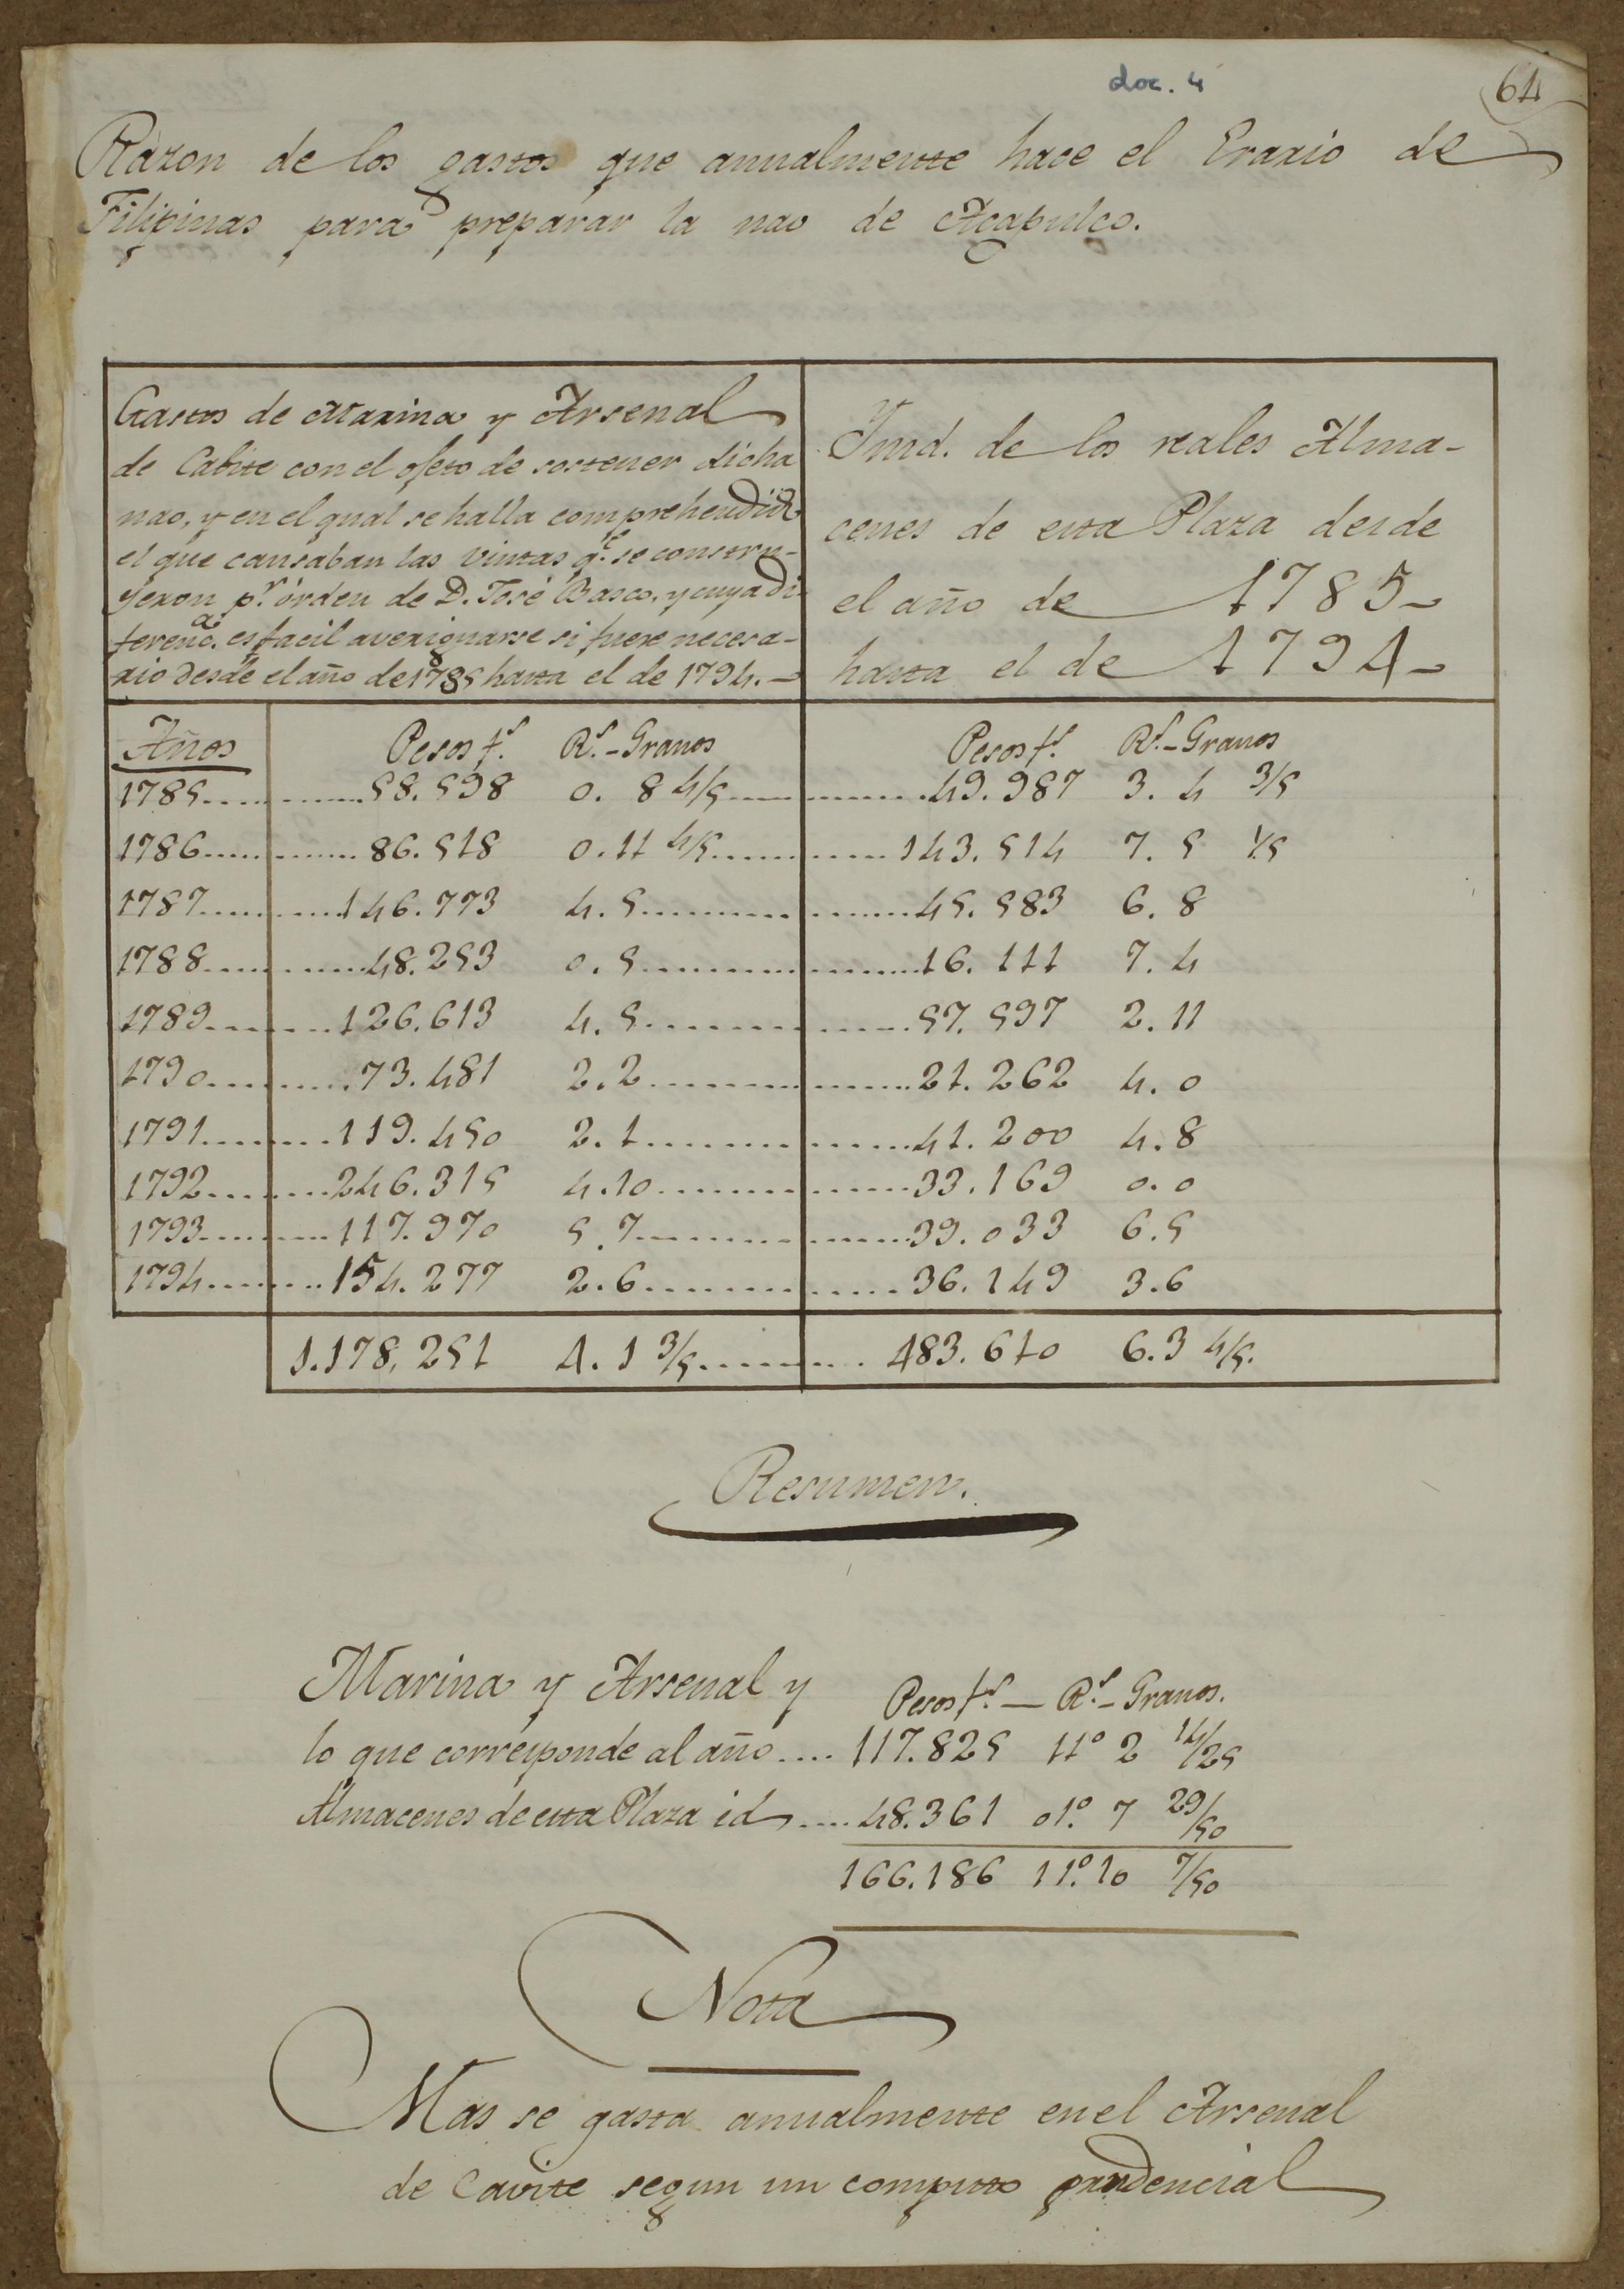 doc. 4
64
Razon de los gastos que anualmente hace el Erario de
Filipinas para preparar la nao de Acapulco.
Gastos de Marina y Arsenal
de Cabite con el ofeto de sostener dicha
nao, y en el qual se halla comprehendido
el que causaban las vintas q.e se constru-
yeron p.r órden de D. José Basco, y cuya di-
ferenc.a es facil averiguarse si fuere necesa-
rio desde el año de 1785 hasta el de 1794.
Ymd. de los reales Alma-
cenes de esta Plaza desde
el año de 1785
hasta el de 1794
Años Pesos f.s R.s - Granos Pesos f.s R.s - Granos
1785 58.598 0. 8 4/5 49.987 3. 4 3/5
1786 86.518 0. 11 4/5 143.514 7. 5 1/5
1787 146.773 4. 5 45.583 6. 8
1788 48.253 0. 5 16.111 7. 4
1789 126.613 4. 5 57.597 2. 11
1790 73.481 2. 2 21.262 4. 0
1791 119.450 2. 1 41.200 4. 8
1792 246.315 4. 10 33.169 0. 0
1793 117.970 5. 7 39.033 6. 5
1794 154.277 2. 6 36.149 3. 6
1.178,251 4. 1 3/5 483.610 6. 3 4/5.
Resumen.
Marina y Arsenal y Pesos f.s — R.s - Granos.
lo que corresponde al año .... 117.825 11º 2 14/25
Almacenes de esta Plaza id .... 48.361 01º. 7 29/50
166.186 11º. 10 7/50
Nota
Mas se gasta anualmente en el Arsenal
de Cavite segun un computo prudencial